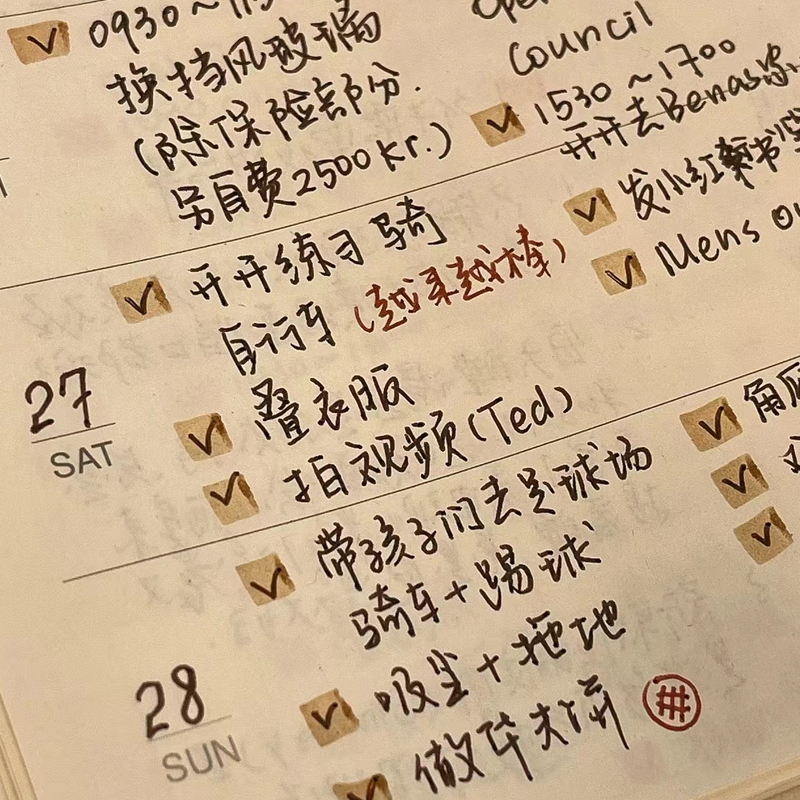 0930~
换挡风玻璃
(除保险部份.
另自费2500kr.)
Council
1530~1700
开开去Benas家
发小红薯书
Mens
27
SAT
开开练习骑
自行车(越来越棒)
叠衣服
拍视频(Ted)
28
SUN
带孩子们去足球场
骑车+踢球
吸尘+拖地
做华夫饼